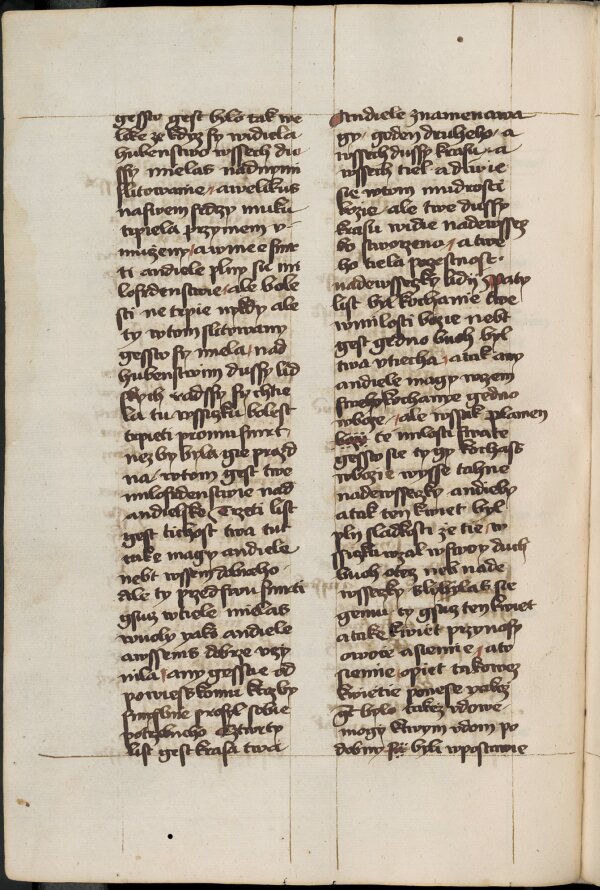 gessto gest bylo tak we
like ze kdyz sy widiela
hubenstwo wssech du
ssy mielas nad nymi
slitowanie / a welikus
nasiwem srdczy muku
trpiela przymem v
muczeny / a w mee smr
ti andiele plny su mi
losrdenstwie / ale bole
sti ne trpie nykdy ale
ty w tom slitowany
gessto sy miela / nad
hubenstwim dussy lid
skych radssy sy chtie
la tu wssiczku bolest
trpieti pro mu smrt
nez by byla gie prazd
na / w tom gest twe
milosrdenstwie nad
andielske Trzeti list
gest tichost twa tut
take magy andiele
nebt wssem dobreho
ale ty przed swu smrti
gsuc w tiele mielas
wuoly yako andiele
a wssems dobrze vczy
nila / any gessto od
powiess komu ktoz by
smyslnie prosyl sobie
potrzebneho Cztwrty
list gest krasa twa
Andiele znamenawa
gy / geden druheho / a
wssech dussy krasu / a
wssech tiel a diwie
se w tom mudrosti
bozie / ale twe dussy
krasu widie nade wssecz
ko stworzeno / a twe
ho tiela poczestnost
nade wsseczky lidy Paty
list byl kochanie twe
w milosti bozie nebt
gest gedno buoh byl
twa vtiecha / a tak any
andiele magy wzem
sweho kochanie gedno
w boze / ale wssak plamen
bozy te milosti twate
gessto sie ty gy kochass
w bozie wysse tahne
nade wsseczky andiely
a tak ten kwiet byl
pln sladkosti ze tie / w
ssiczku wzal w swoy duch
buoh otecz neb nade
wsseczky slybylas sie
gemu / ty gsuc ten kwiet
a take kwiet przynosy
owocze a siemie / a to
siemie opiet takowez
kwietie ponese yakez
gt bylo takez wdowe
mogy kterym wdom po
dobny su byli w postawie